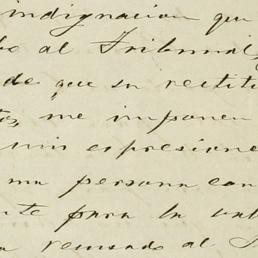 indignacion que
al Tribunal,
de que su rectitu
me imponen
mis espresione
mi persona con
te para la val
recusado al